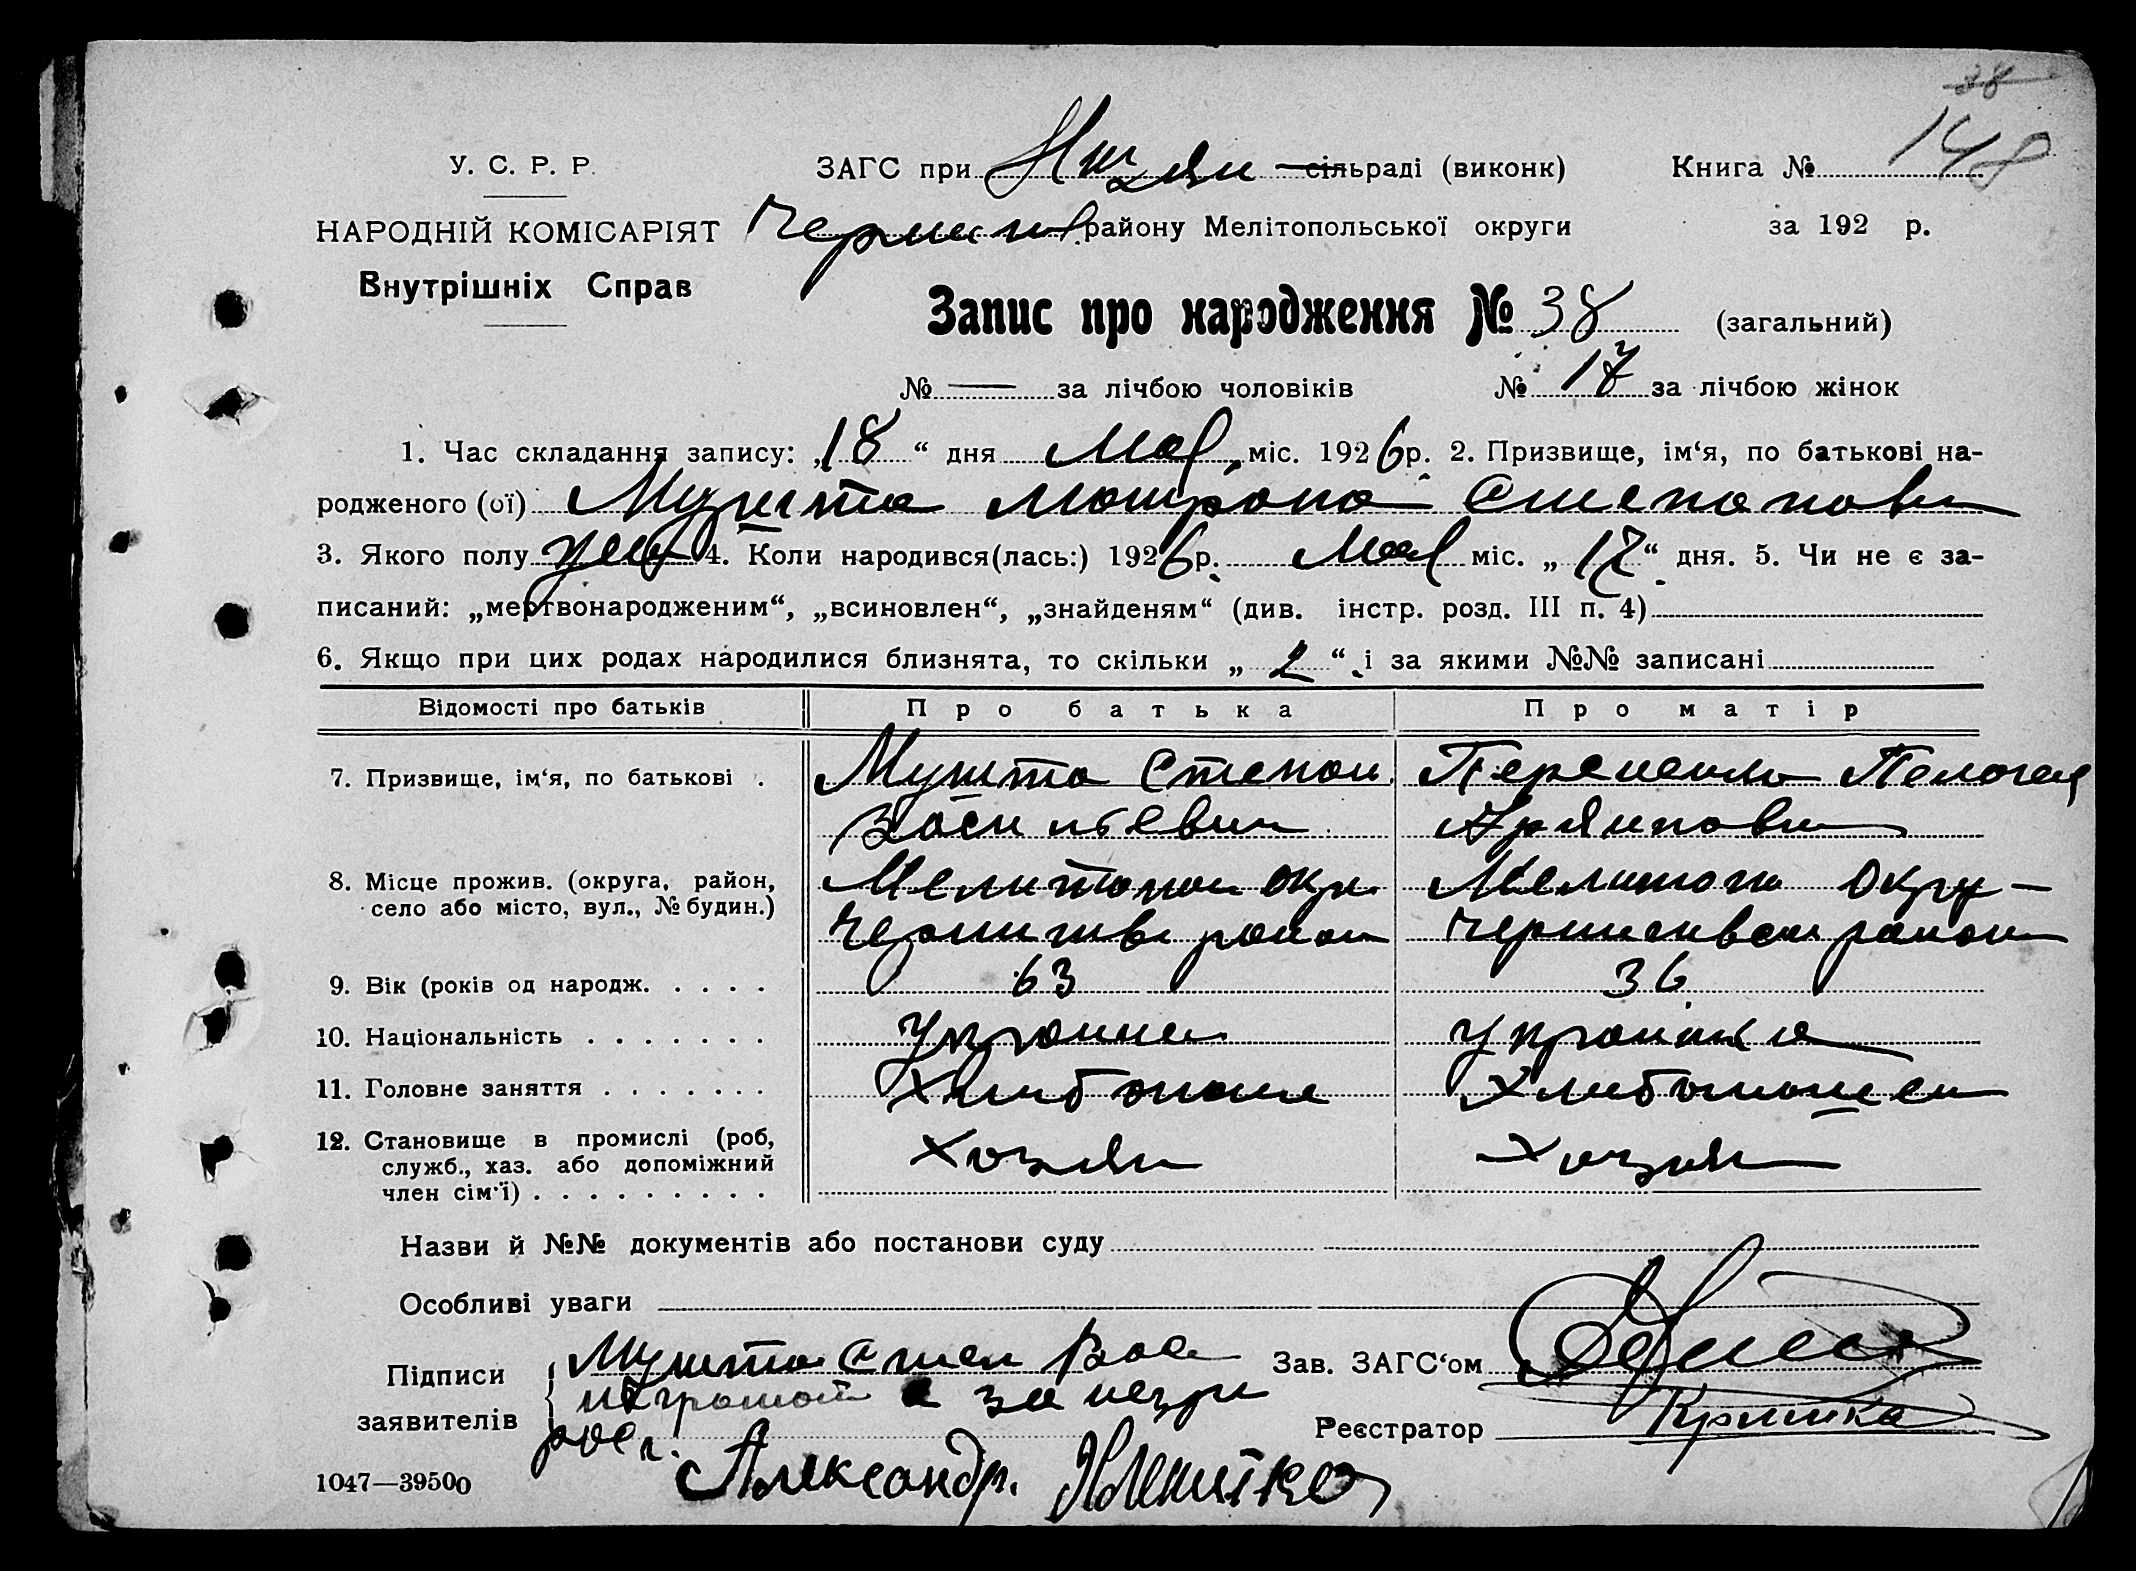 38
148
У. С. Р. Р.
ЗАГС при Низян сільраді (виконк) Книга №
НАРОДНІЙ КОМІСАРІЯТ району Мелітопольської округи за 192 р.
Внутрішніх Справ
Запис про народження № 38 (загальний)
№ — за лічбою чоловіків № 17 за лічбою жінок
1. Час складання запису: „18“ дня Мая міс. 1926 р. 2. Призвище, ім‘я, по батькові на-
родженого (ої) Мушта Мотрона Степанови
3. Якого полу жен 4. Коли народився(лась:) 1926 р. Мая міс. „17“ дня. 5. Чи не є за-
писаний: „мертвонародженим“, „всиновлен“, „знайденям“ (див. інстр. розд. III п. 4)
6. Якщо при цих родах народилися близнята, то скільки „2“ і за якими №№ записані
Відомості про батьків Про батька Про матір
7. Призвище, ім‘я, по батькові . Мушта Степан Пелогея
Васильевич
8. Місце прожив. (округа, район, Мелитопол окр Мелитоп окру —
село або місто, вул., № будин.) район район
9. Вік (років од народж. . . . . 63 36
10. Національність . . . . . . . Украине Украинка
11. Головне заняття . . . . . . .
12. Становище в промислі (роб, Хозяин Хозяи
служб., хаз. або допоміжний
член сім‘ї) . . . . . . . . . .
Назви й №№ документів або постанови суду
Особливі уваги
Підписи Мушта Степ Вас Зав. ЗАГС‘ом
заявителів неграмот а за него Реєстратор Кришка
рос.
1047—39500 Александр.